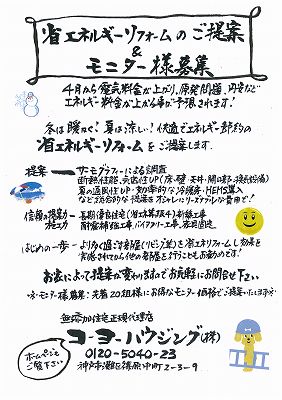 省エネルギーリフォームのご提案
&
モニター様募集
4月から電気料金が上がり、原発問題、円安など
エネルギー料金が上がる事が予想されます!
冬は暖かく!夏は涼しい!快適でエネルギー節約の
省エネルギーリフォームをご提案します。
提案 サーモグラフィーによる調査
断熱性能、気密性UP(床・壁・天井・開口部)
夏の通風性UP・効率的な冷暖房・HEMS導入
など総合的な提案をオシャレにリーズナブルな費用で!
信頼の提案力 長期優良住宅(省エネ等級4)新築工事
耐震補強工事、バイアフリー工事、
はじめの一歩 より多く過ごす部屋(リビング)を省エネリフォームし効果を
実感されてから他の部屋を行うこともお勧めです!
お家によって提案が変わりますのでお気軽にお問合せ下さい
モニター様募集:先着20組様にお得なモニター価格でご提案いたします
無添加住宅正規代理店
コーヨーハウジング(株)
0120-5040-23
神戸市灘区篠原中町2-3-9
ホームページも
ご覧下さい